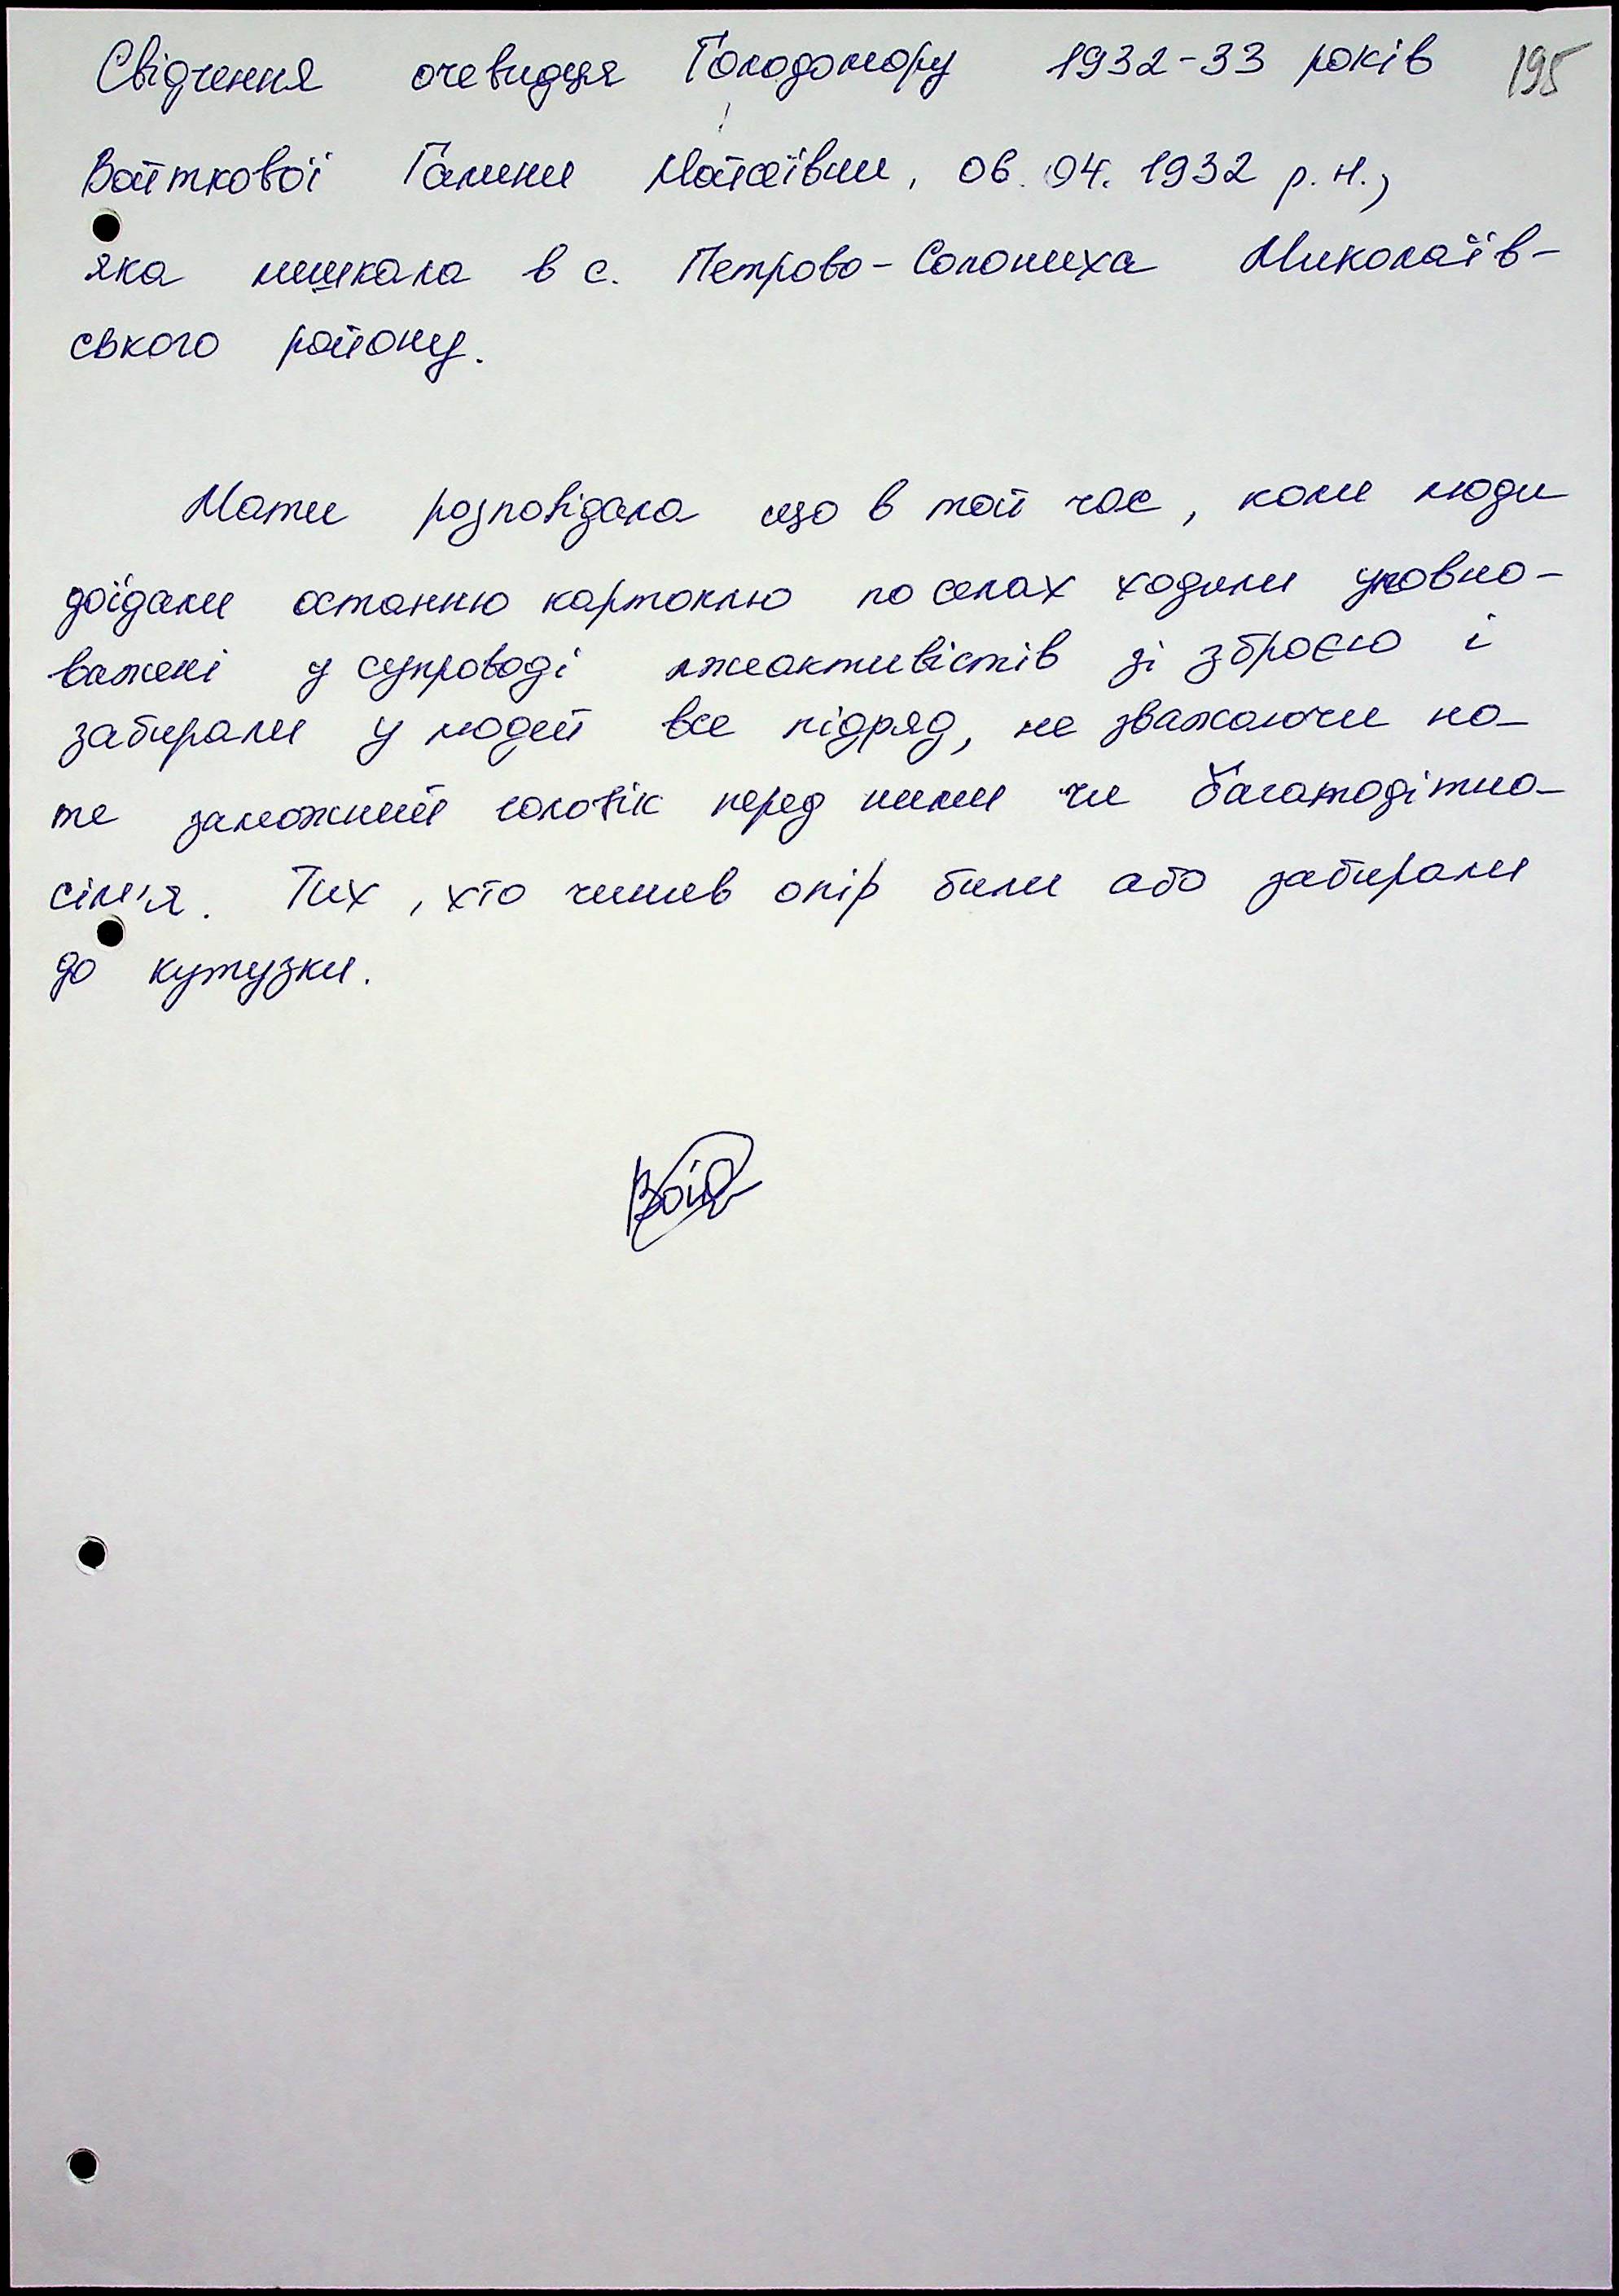 Свідчення очевидця Голодомору 1932-33 років 195
Войткової Галини Мойсеївни, 06.04.1932 р.н.,
яка мешкала в с. Петрово-Солониха Миколаїв-
ського району.
Мати розповідала що в той час, коли люди
доїдали останню картоплю по селах ходили уповно-
важені у супроводі лжеактивістів зі зброєю і
забирали у людей все підряд, не зважаючи на-
те заможний чоловік перед ними чи багатодітна-
сім'я. Тих, хто чинив опір били або забирали
до кутузки.